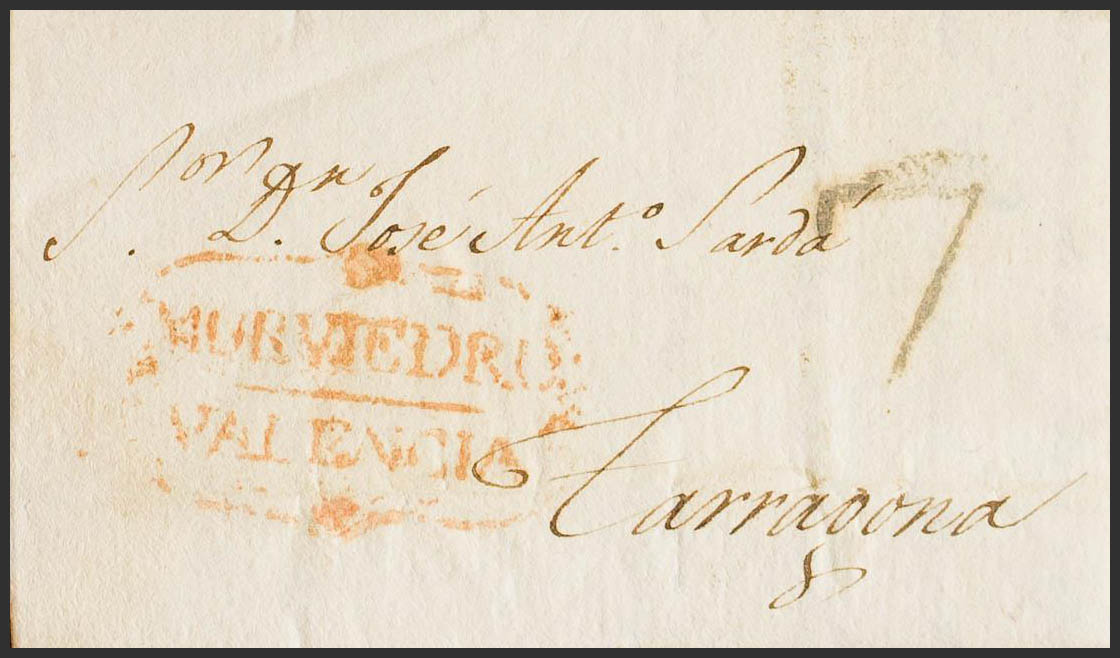 S.ᵒʳ D.ⁿ José Ant.º Sardá
7
MURVIEDRO
VALENCIA
Tarragona